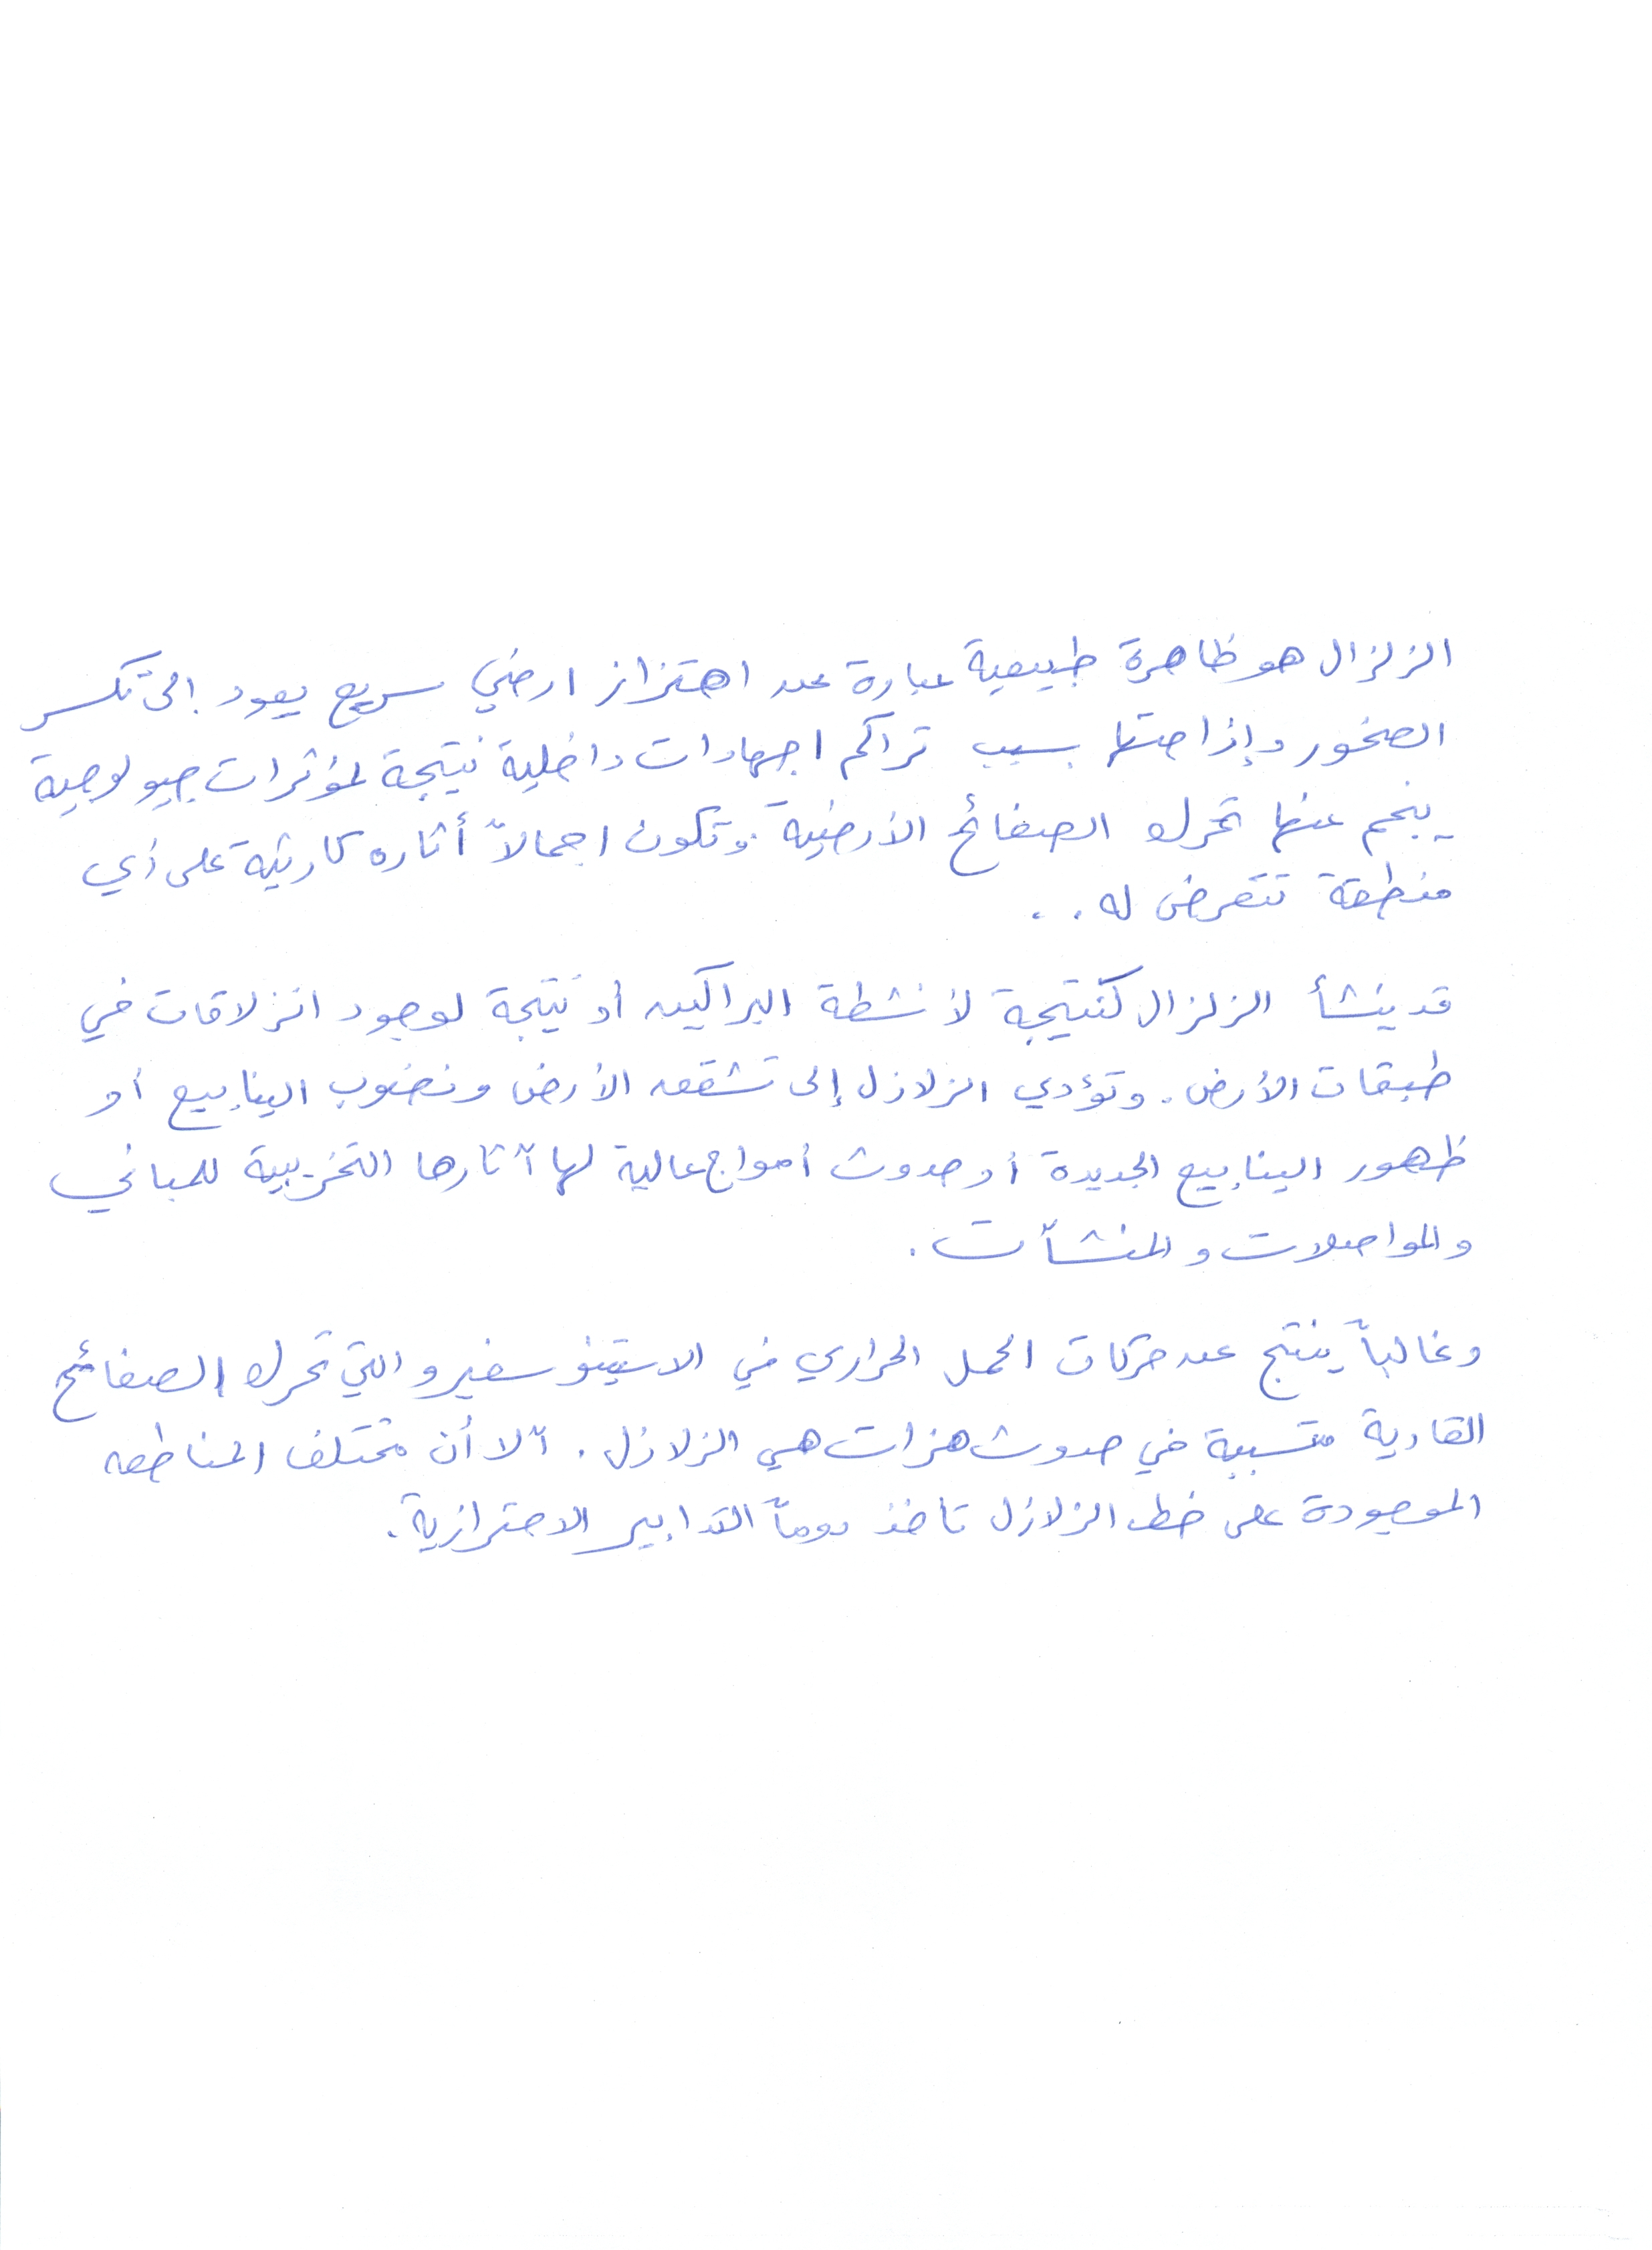 الزلزال هو ظاهرة طبيعية عبارة عن اهتزاز ارضي سريع يعود إلى تكسر
الصخور وإزاحتها بسبب تراكم اجهادات داخلية نتيجة لمؤثرات جيولوجية
ينجم عنها تحرك الصفائح الأرضية. وتكون اجمالاً أثاره كارثية على أي
منطقة تتعرض له..
قد ينشأ الزلزال كنتيجة لأنشطة البراكين أو نتيجة لوجود انزلاقات في
طبقات الأرض. وتؤدي الزلازل إلى تشقق الأرض ونضوب الينابيع أو
ظهور الينابيع الجديدة أو حدوث أمواج عالية لها آثارها التخريبية للمباني
والمواصلات والمنشآت.
وغالباً ينتج عن حركات الحمل الحراري في الاستينوسفير والتي تحرك الصفائح
القارية متسببة في حدوث هزات هي الزلازل. آلا أن مختلف المناطق
الموجودة على خط الزلازل تاخذ دوماً التدابير الاحترازية.